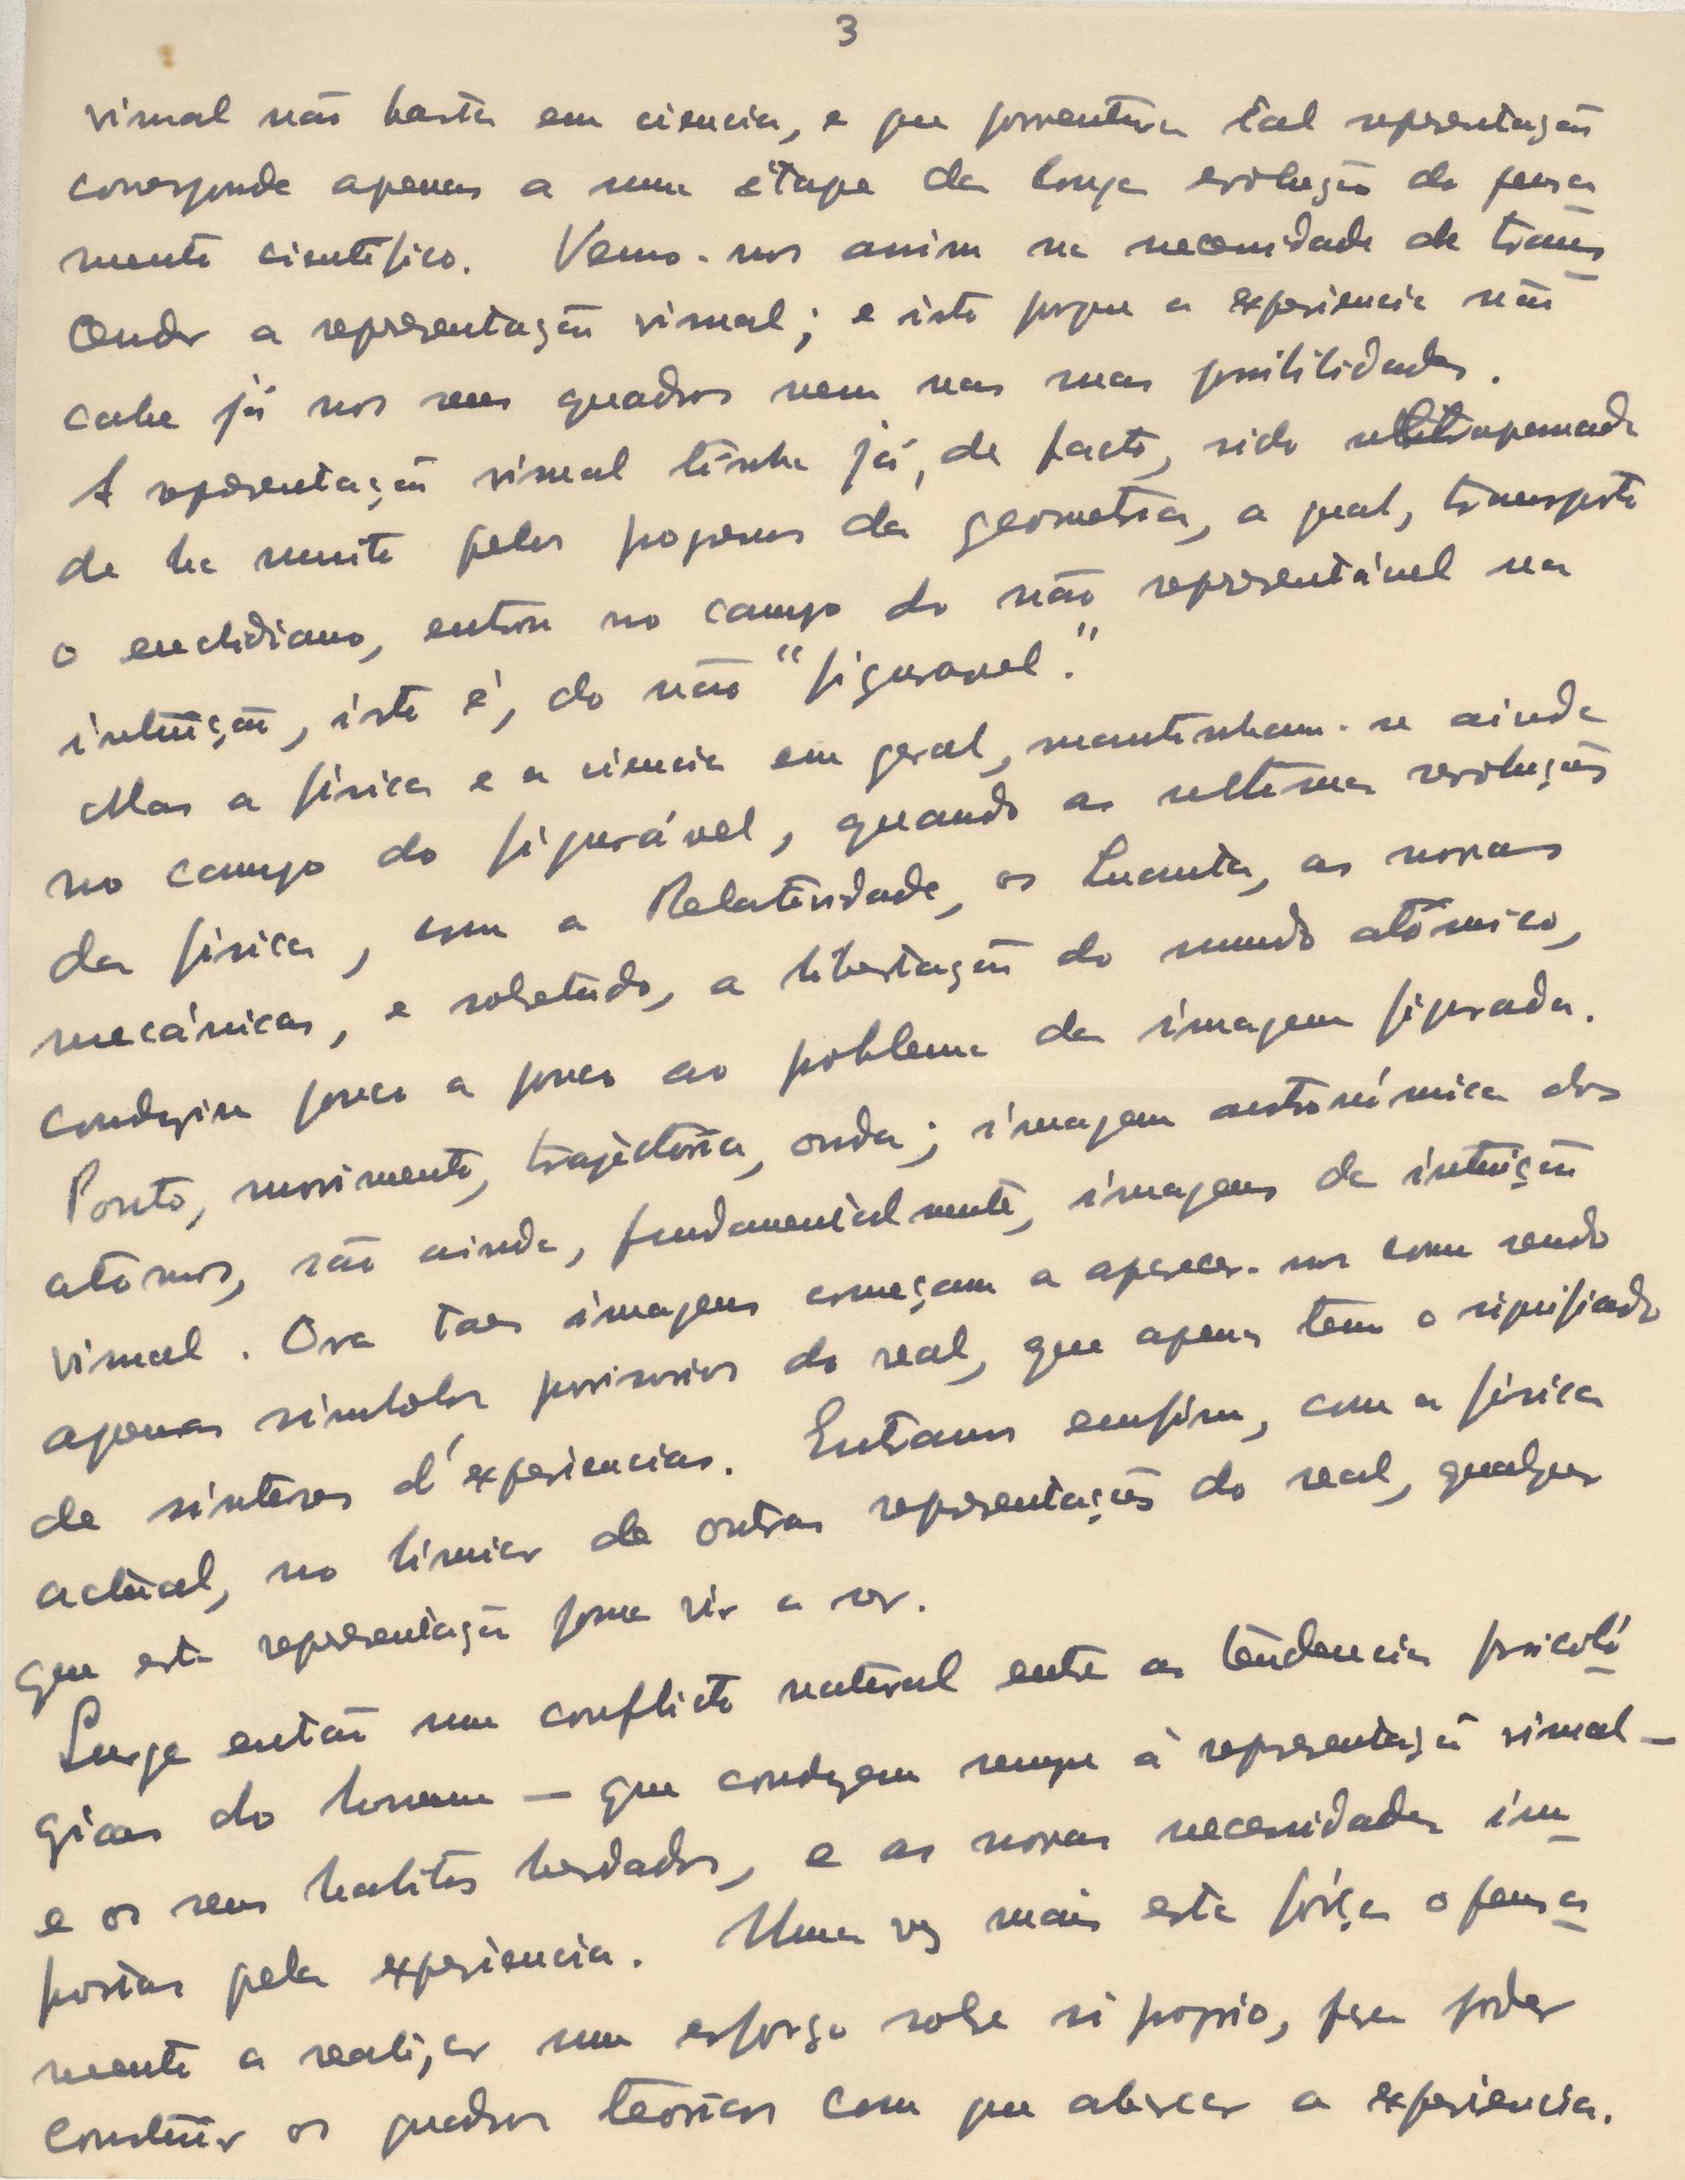 3
visual não basta em ciencia, e que porventura tal representação
corresponde apenas a uma étape da longa evolução do pensa
mento cientifico. Vemo-nos assim na necessidade de trans
cender a representação visual; e isto porque a experiencia não
cabe já nos seus quadros nem nas suas possibilidades.
A representação visual tinha já, de facto, sido ultrapassada
de ha muito pelos progressos da geometria, a qual, transposto
o euclidiano, entrou no campo do não representável na
intuição, isto é, do não "figuravel".
Mas a fisica e a ciencia em geral, mantinham-se ainda
no campo do figurável, quando as ultimas revoluções
da fisica, com a Relatividade, os Quanta, as novas
mecánicas, e sobretudo, a libertação do mundo atómico,
conduziu pouco a pouco ao problema da imagem figurada.
Ponto, movimento, trajectoria, onda; imagem astronómica dos
atomos, são ainda, fundamentalmente, imagens da intuição
visual. Ora taes imagens começam a aparecer-nos como sendo
apenas simbolos provisorios do real, que apenas tem o significado
de sinteses d'experiencias. Entramos emfim, com a fisica
actual, no limiar de outras representações do real, qualquer
que esta representação possa vir a ser.
Surge então um conflicto natural entre as tendencias psicoló
gicas do homem — que conduzem sempre á representação visual —
e os seus habitos herdados, e as novas necessidades im
postas pela experiencia. Uma vez mais esta fórça o pensa
mento a realizar um esforço sobre si proprio, para poder
construir os quadros teoricos com que abarcar a experiencia.